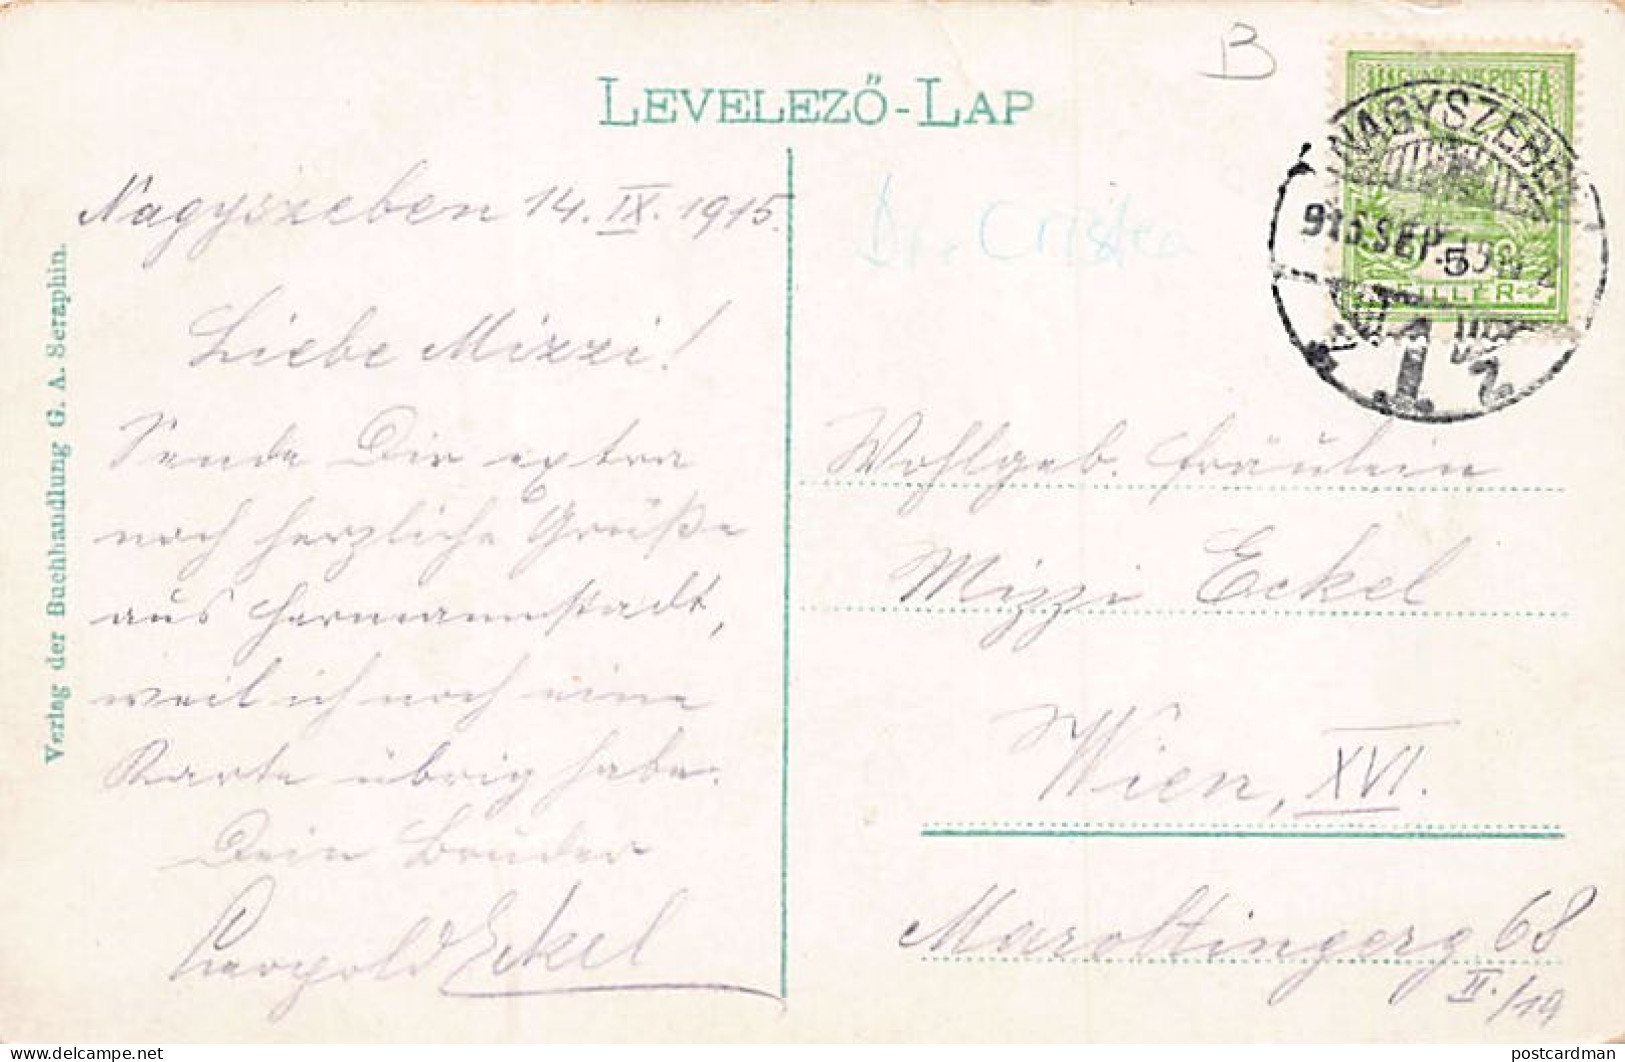 B
LEVELEZŐ-LAP
MAGYAR KIR. POSTA
NAGYSZEBEN
915 SEP. 15
5
FILLÉR
Dr. Cristea
Nagyszeben 14. IX. 1915.
Liebe Mizzi!
Sende Dir extra
noch herzliche Grüße
aus Hermannstadt,
weil ich noch eine
Karte übrig habe.
Dein Bruder
Leopold Eckel
Verlag der Buchhandlung G. A. Seraphin.
Wohlgeb. Fräulein
Mizzi Eckel
Wien, XVI.
Maroltingerg 68
II./19
postcardman